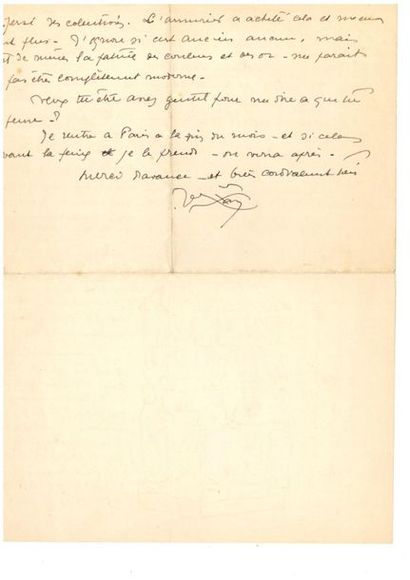 des collections. L'armurier a acheté cela et
plus - J'ignore si c'est ancien ancien, mais
la patine de couleurs et des or - me parait
pas être complètement moderne -
Veux tu être assez gentil pour me dire à que tu
penses ?
Je rentre à Paris à la fin du mois - et si cela
vaut la peine je le prends - on verra après -
Merci d'avance - et bien cordialement